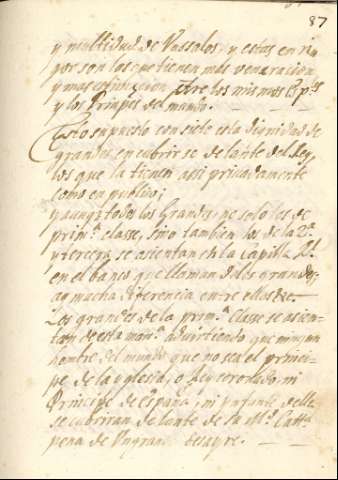 87
y multitud de Vassalos, y estas en ri
gor son los que tienen más veneracion
y mas estimacion entre los mismos Esps
y los Principes del mundo.
Esto supuesto consiste esta dignidad de
grandes, en cubrirse delante del Rey,
los que la tienen assi privadamente
como en publico;
y aunqe todos los Grandes, no solo los de
primª classe, sino tambien los de la 2ª
y tercera, se asientan en la Capilla Rl
en el banco que llaman de los grandes,
ay mucha diferencia entre ellos.
Los grandes de la primª Classe se asien-
tan de esta manª advirtiendo que ningun
hombre del mundo que no sea el princi-
pe de la yglesia, o Rey coronado, ni
Principe de españa, ni ynfante della
se cubriran delante de su Mgd Catta
pena de Un gran desayre.